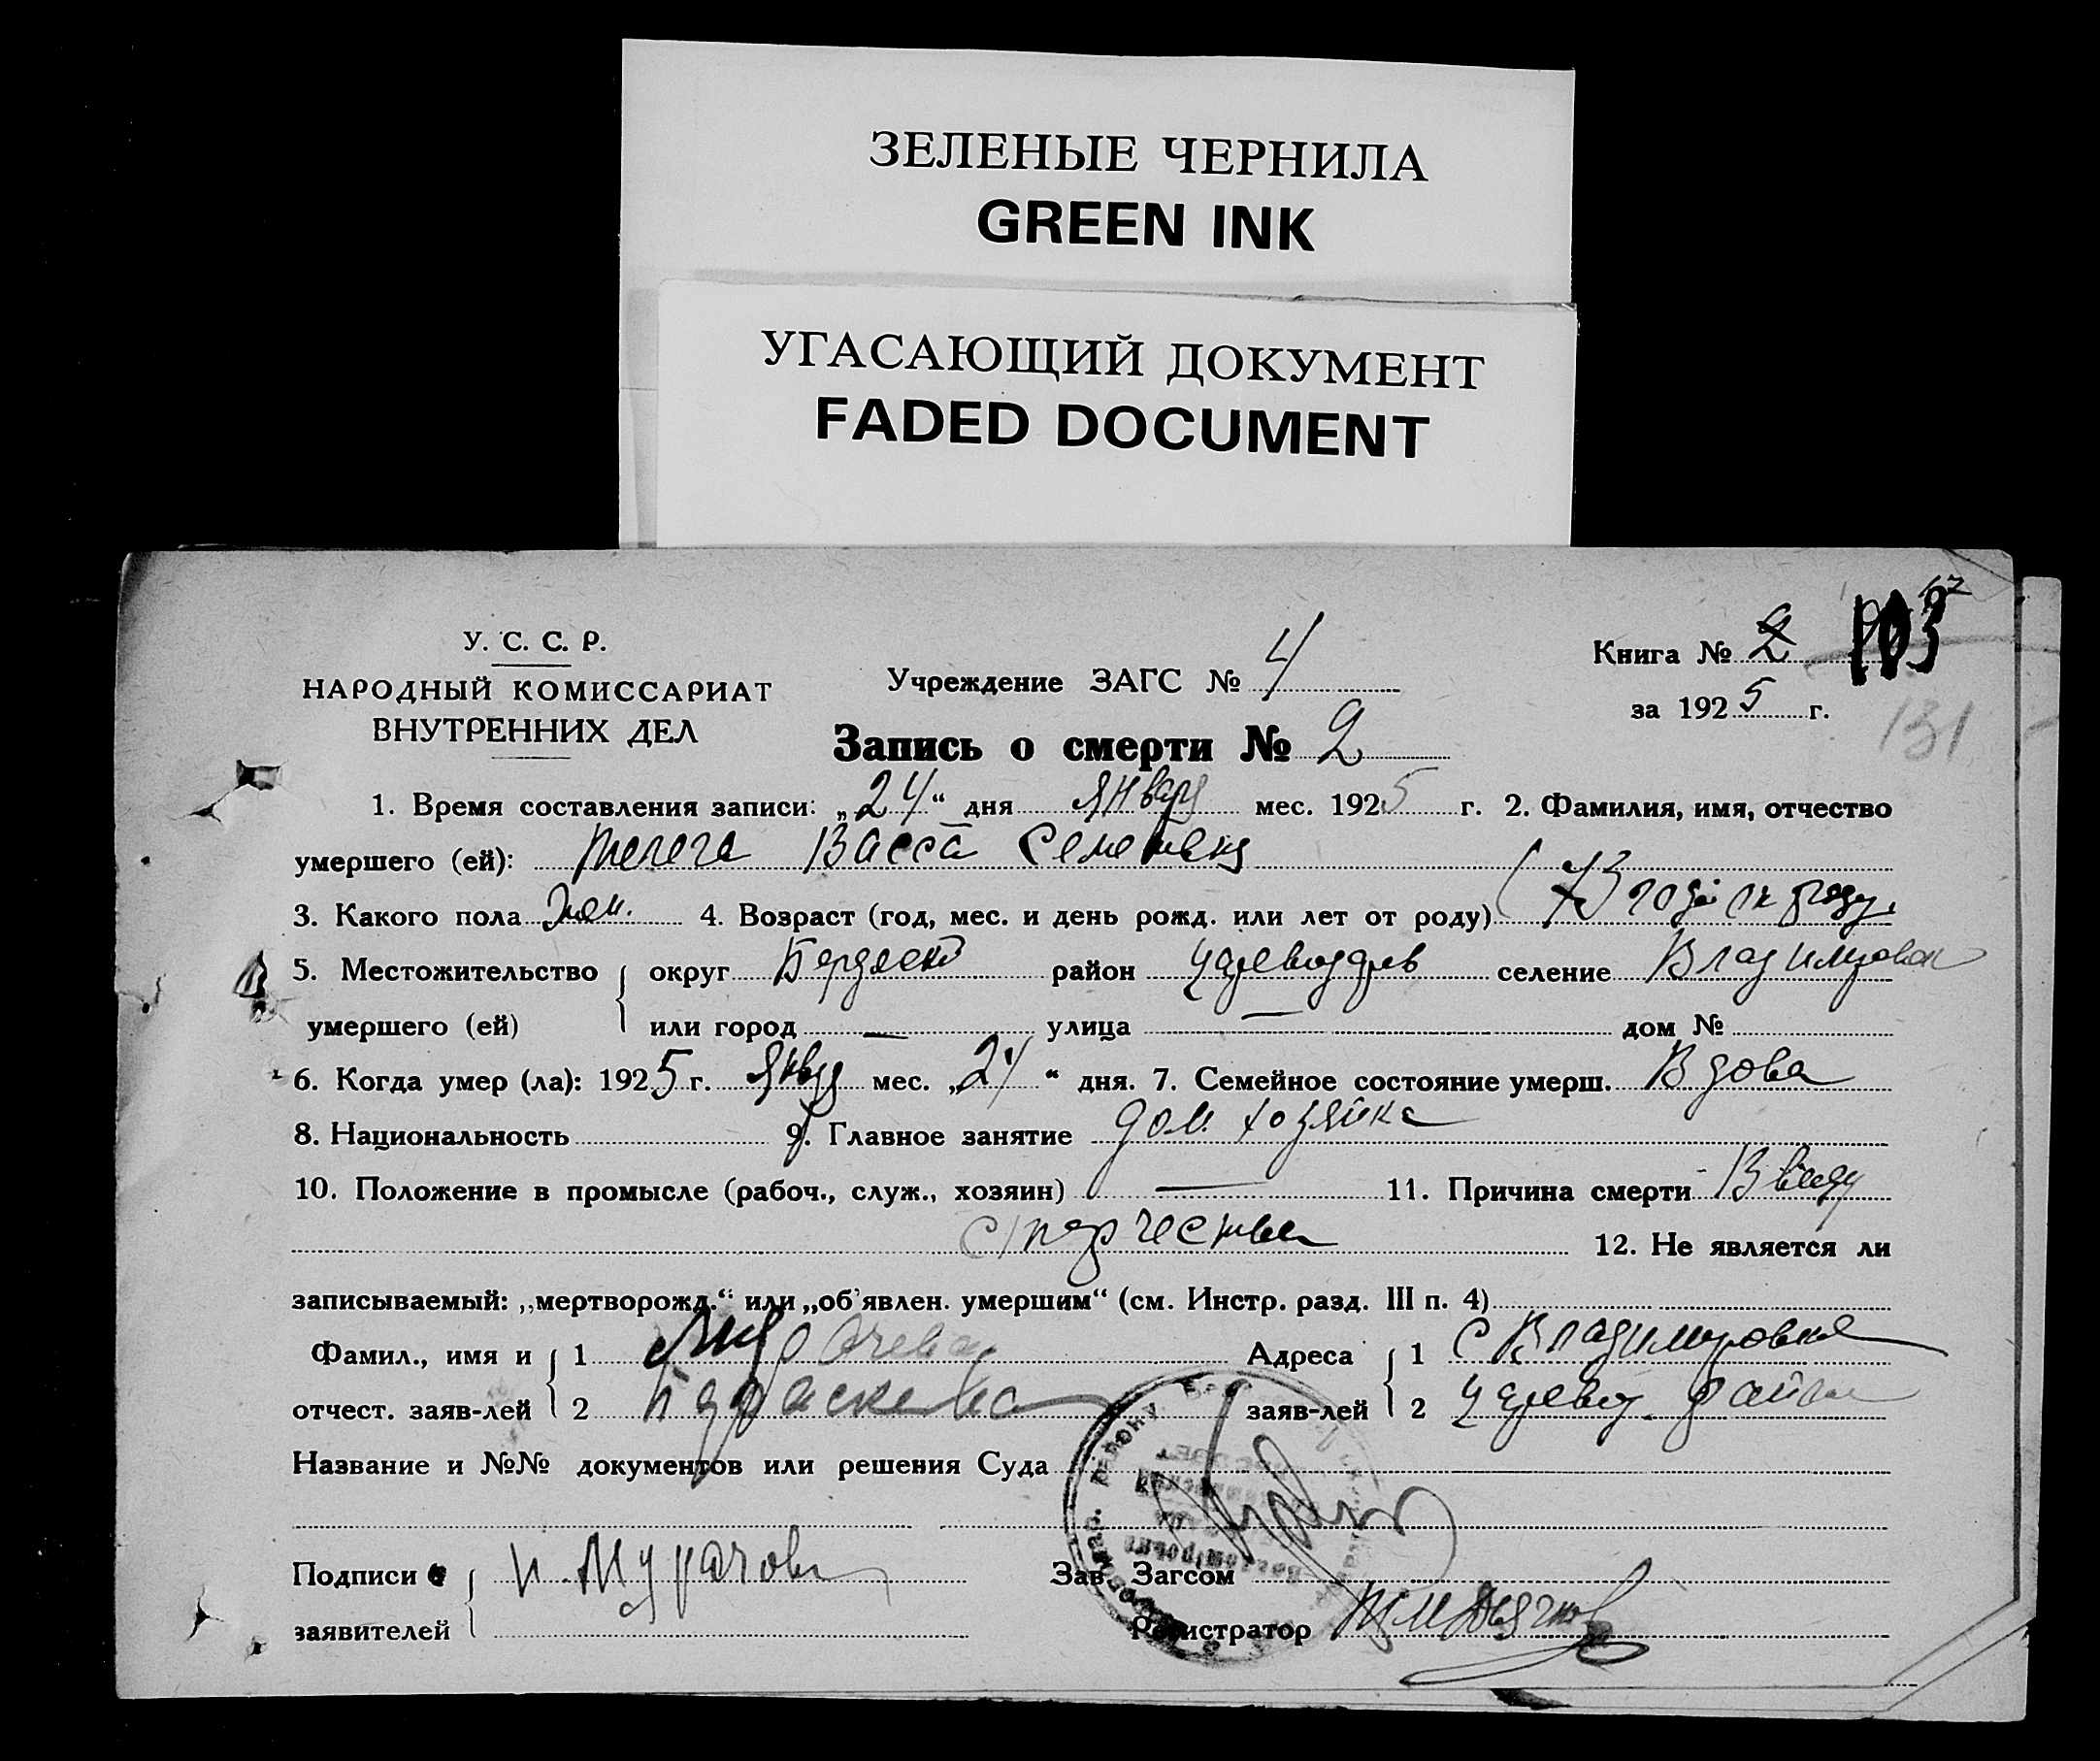 ЗЕЛЕНЫЕ ЧЕРНИЛА
GREEN INK
УГАСАЮЩИЙ ДОКУМЕНТ
FADED DOCUMENT
У. С. С. Р.
НАРОДНЫЙ КОМИССАРИАТ
ВНУТРЕННИХ ДЕЛ
Учреждение ЗАГС № 4
Книга № 2 103
за 1925 г. 131
Запись о смерти № 2
1. Время составления записи: „24“ дня января мес. 1925 г. 2. Фамилия, имя, отчество
умершего (ей): Телега Васса Семеновна
3. Какого пола жен. 4. Возраст (год, мес. и день рожд. или лет от роду) (73 года от роду.
5. Местожительство округ Бердянск район Царевод селение Владимировка
умершего (ей) или город — улица — дом №
6. Когда умер (ла): 1925 г. Январ мес. „24“ дня. 7. Семейное состояние умерш. Вдова
8. Национальность 9. Главное занятие дом. хозяйка
10. Положение в промысле (рабоч., служ., хозяин) — 11. Причина смерти Ввиду
старчества 12. Не является ли
записываемый: „мертворожд.“ или „об'явлен. умершим“ (см. Инстр. разд. III п. 4)
Фамил., имя и 1 Адреса 1 с Владимировка
отчест. заяв-лей 2 Параскева заяв-лей 2 район
Название и №№ документов или решения Суда
Подписи Зав. Загсом
заявителей Регистратор